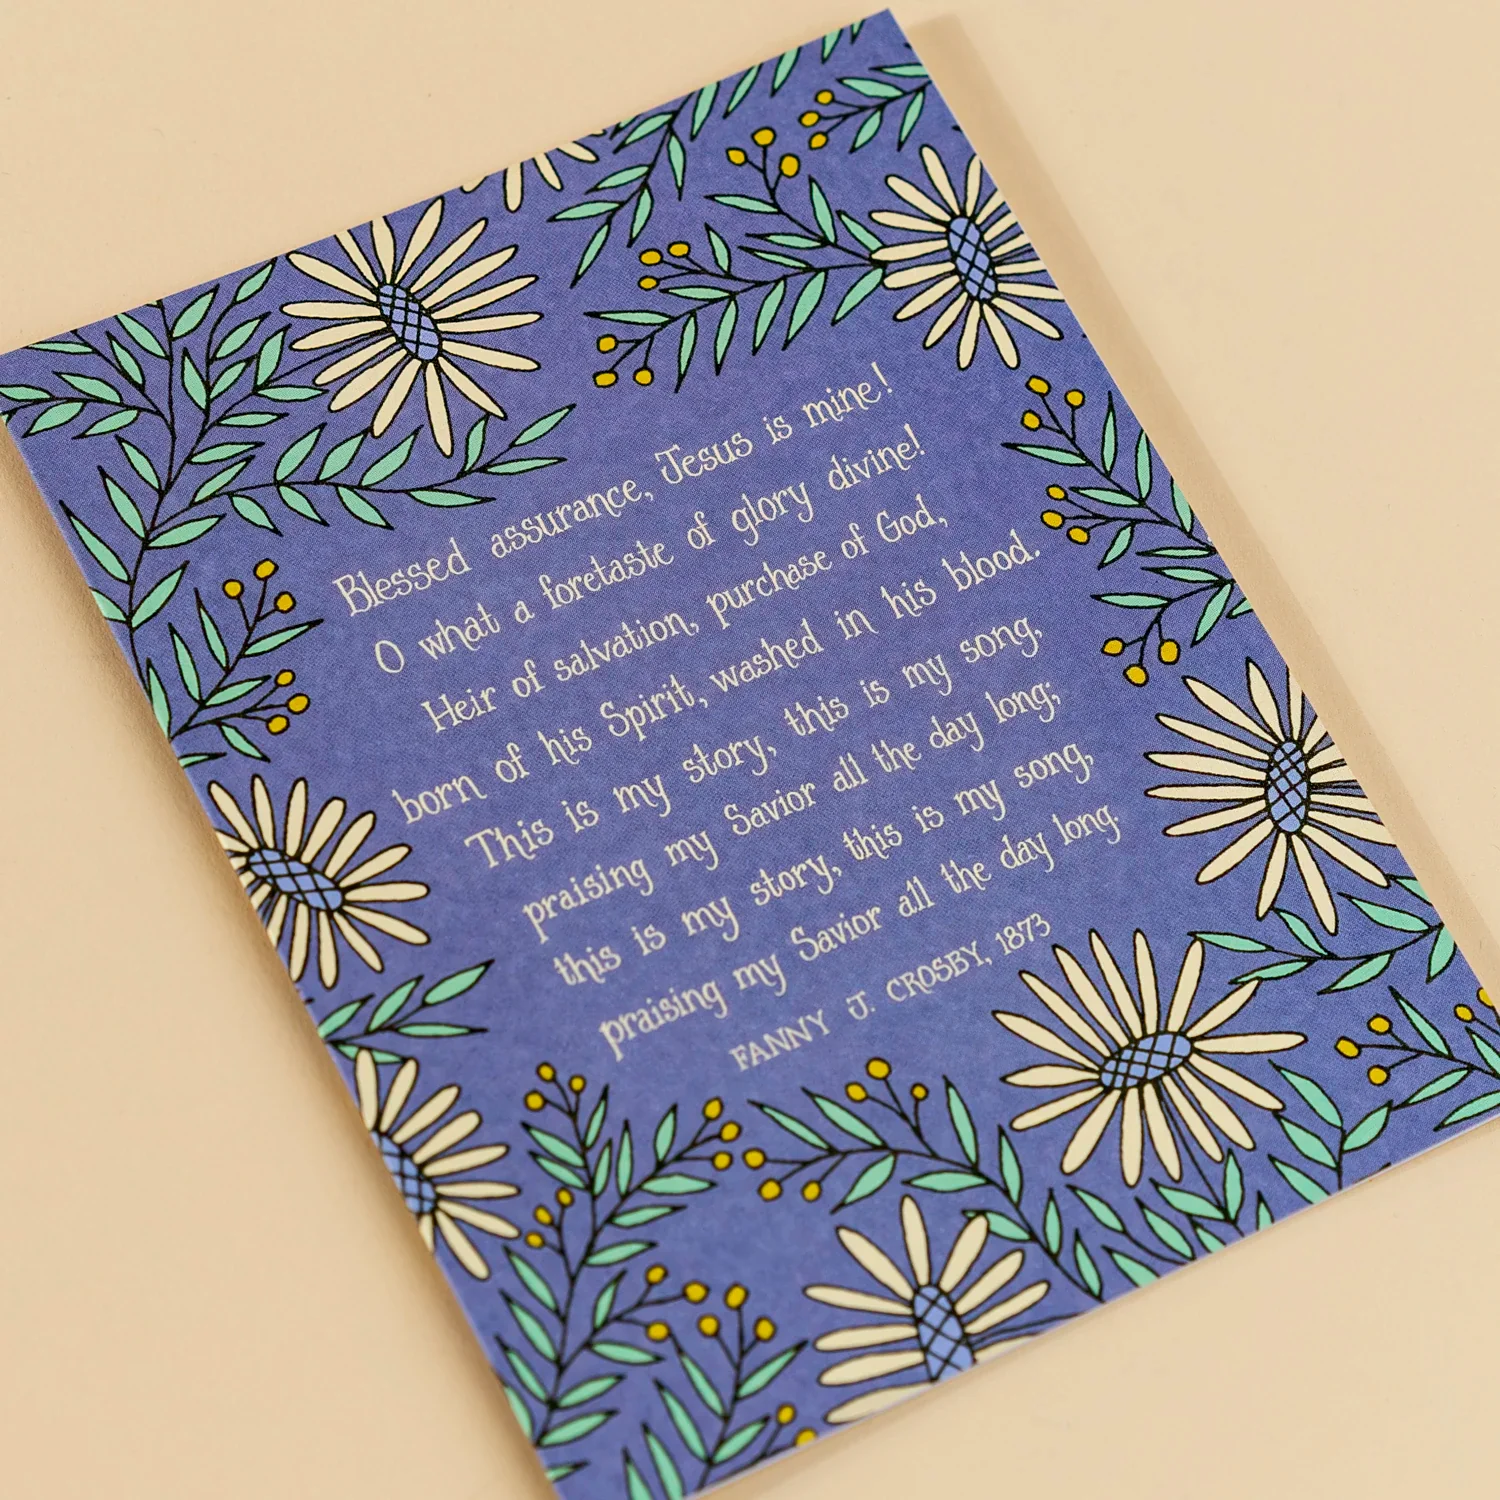 Blessed assurance, Jesus is mine!
O what a foretaste of glory divine!
Heir of salvation, purchase of God,
born of his Spirit, washed in his blood.
This is my story, this is my song,
praising my Savior all the day long;
this is my story, this is my song,
praising my Savior all the day long.
FANNY J. CROSBY, 1873